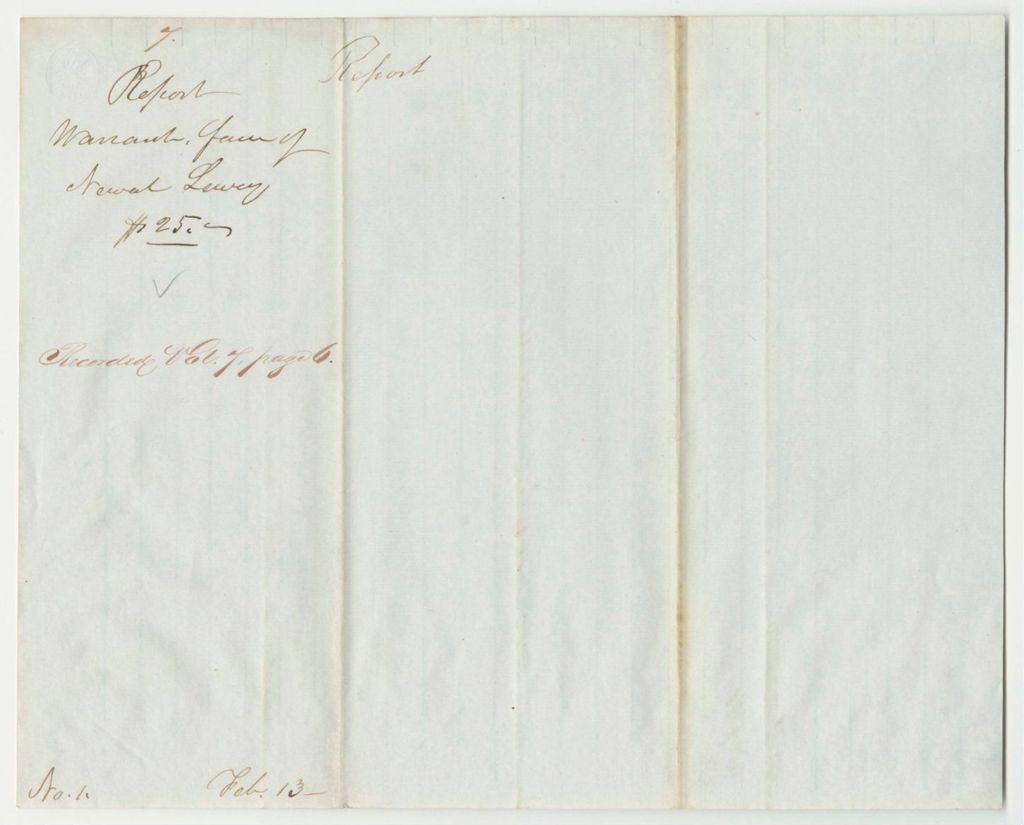 7.
Report
Warrant, favr of
Newal Lewey
$25.
Recorded Vol. 7, page 6.
No. 1.
Feb. 13-
Report